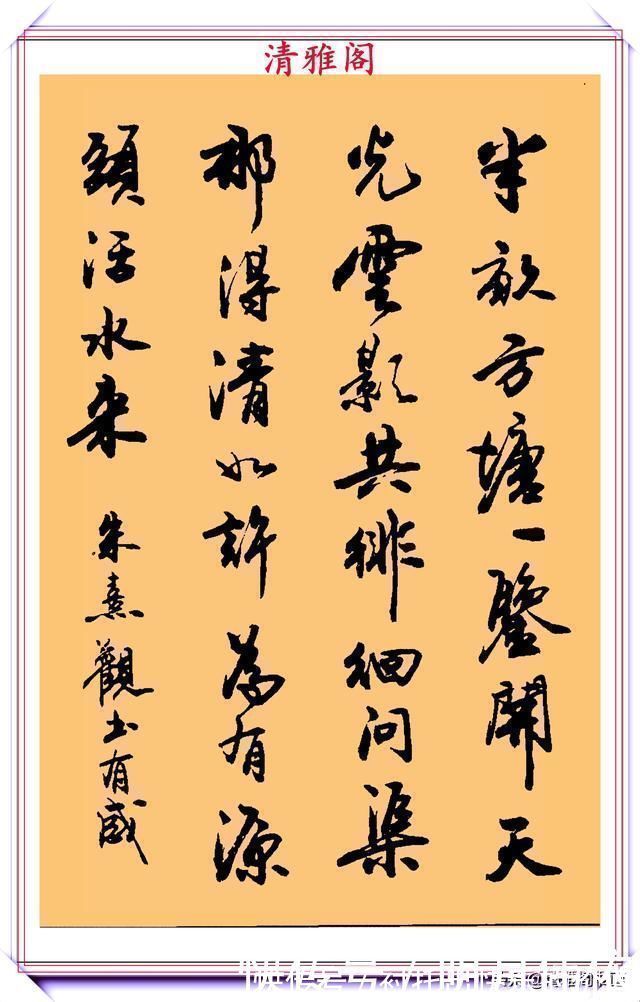 清雅阁
半畝方塘一鑒開天
光雲影共徘徊問渠
那得清如許為有源
頭活水来
朱熹觀书有感